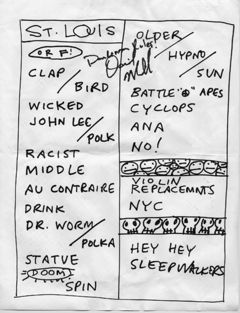 ST. LOUIS
OR F!
CLAP/
BIRD
WICKED
JOHN LEE/
POLK
RACIST
MIDDLE
AU CONTRAIRE
DRINK
DR. WORM/
POLKA
STATUE
DOOM
SPIN
OLDER/
HYPNO/
SUN
BATTLE APES
CYCLOPS
ANA
NO!
VIOLIN
REPLACEMNTS
NYC
HEY HEY
SLEEPWALKERS